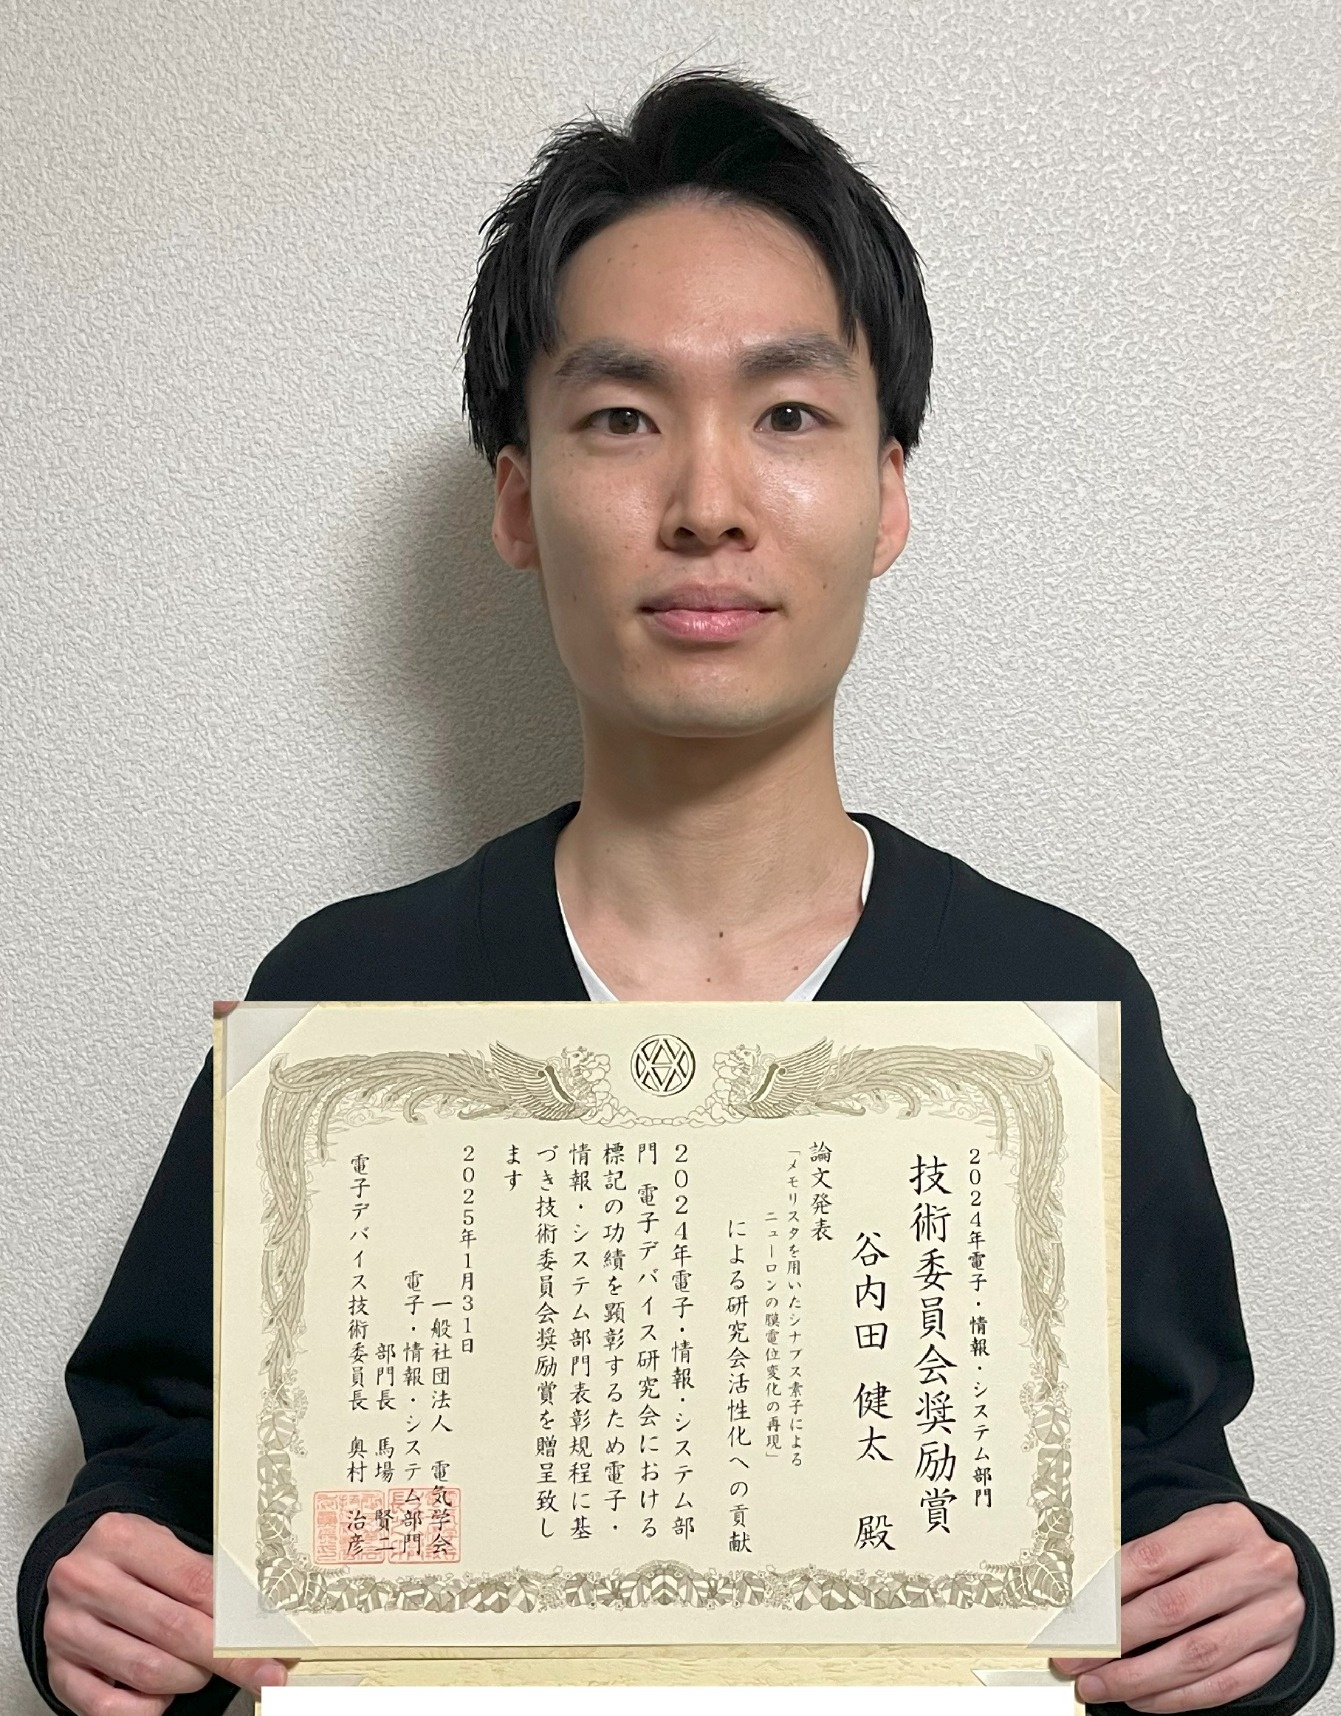 2024年電子・情報・システム部門
技術委員会奨励賞
谷内田 健太 殿
論文発表
「メモリスタを用いたシナプス素子による
ニューロンの膜電位変化の再現」
による研究会活性化への貢献
2024年電子・情報・システム部
門 電子デバイス研究会における
標記の功績を顕彰するため電子・
情報・システム部門表彰規程に基
づき技術委員会奨励賞を贈呈致し
ます
2025年1月31日
一般社団法人 電気学会
電子・情報・システム部門
部門長 馬場 賢二
電子デバイス技術委員長 奥村 治彦